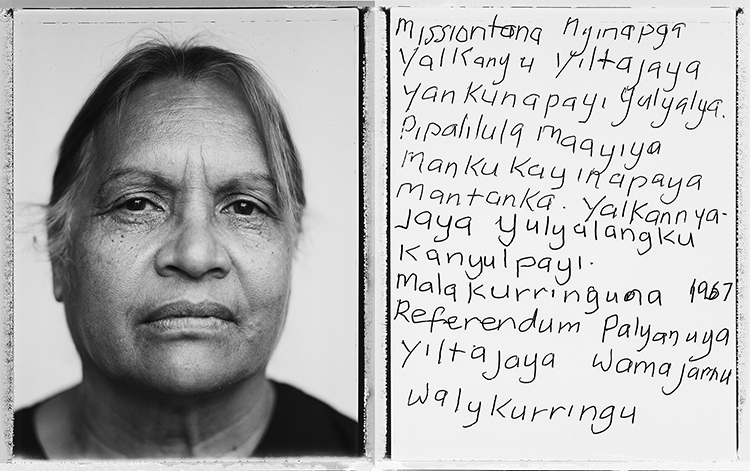 missiontana nyinapga
yalkanyu yiltajaya
yankunapayi yulyalya.
Pipalilula maayiya
manku kayinapaya
mantanka. yalkannya-
jaya yulyalangku
kanyulpayi.
malakurringuna 1967
Referendum Palyanuya
yiltajaya wamajarnu
walykurringu